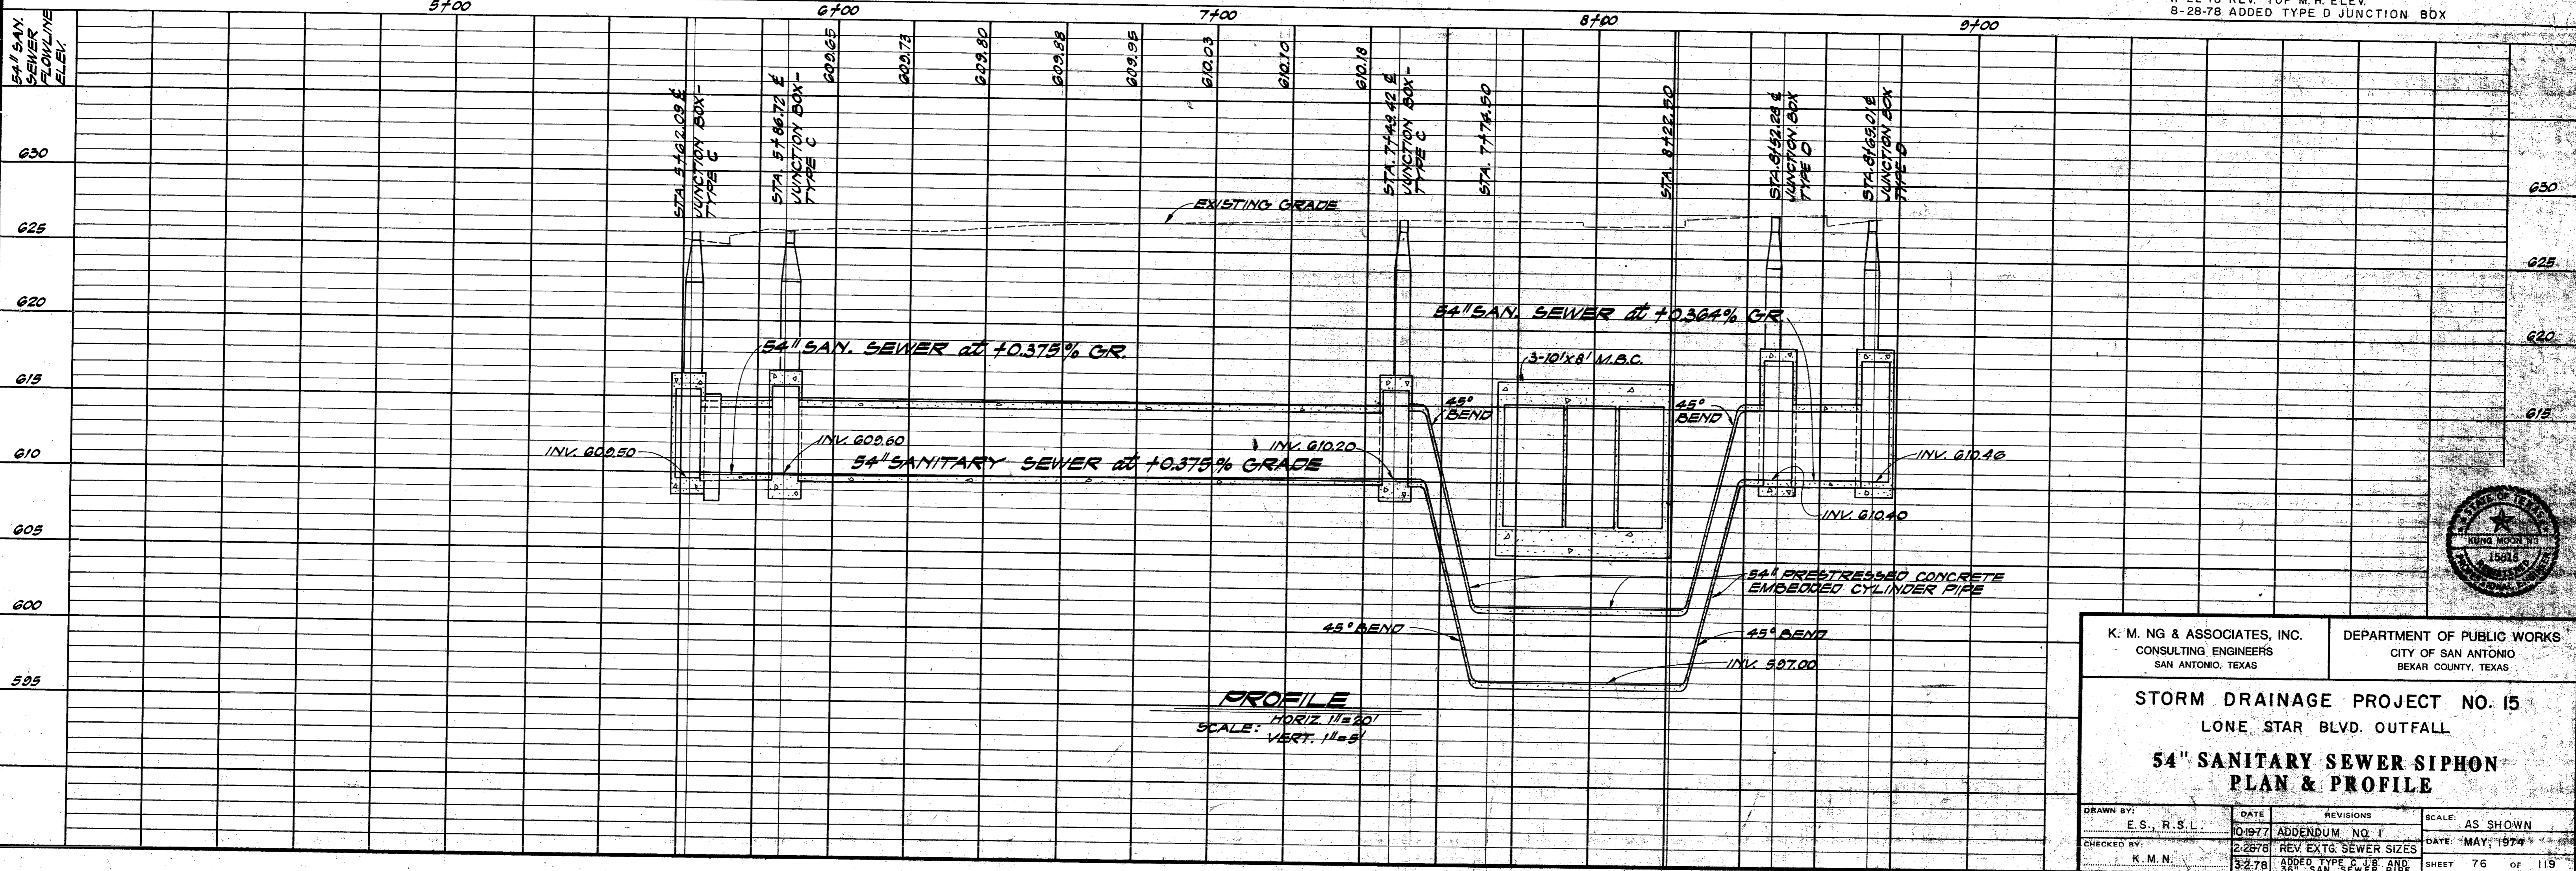 11-22-78 REV. TOP M.H. ELEV.
8-28-78 ADDED TYPE D JUNCTION BOX
5+00
6+00
7+00
8+00
9+00
54" SAN.
SEWER
FLOWLINE
ELEV.
609.65
609.73
609.80
609.88
609.95
610.03
610.10
610.18
STA. 5+62.09 ℄
JUNCTION BOX-
TYPE C
STA. 5+86.72 ℄
JUNCTION BOX-
TYPE C
STA. 7+49.42 ℄
JUNCTION BOX-
TYPE C
STA. 7+74.50
STA. 8+22.50
STA. 8+52.28 ℄
JUNCTION BOX
TYPE D
STA. 8+65.01 ℄
JUNCTION BOX
TYPE D
630
630
EXISTING GRADE
625
625
620
620
54" SAN. SEWER at +0.364% GR.
54" SAN. SEWER at +0.375% GR.
3-10'x8' M.B.C.
615
615
45°
BEND
45°
BEND
610
INV. 609.50
INV. 609.60
INV. 610.20
INV. 610.46
54" SANITARY SEWER at +0.375% GRADE
INV. 610.40
605
54" PRESTRESSED CONCRETE
EMBEDDED CYLINDER PIPE
600
45° BEND
45° BEND
INV. 597.00
595
PROFILE
SCALE: HORIZ. 1"=20'
VERT. 1"=5'
STATE OF TEXAS
KUNG MOON NG
15815
REGISTERED
PROFESSIONAL ENGINEER
K. M. NG & ASSOCIATES, INC.
CONSULTING ENGINEERS
SAN ANTONIO, TEXAS
DEPARTMENT OF PUBLIC WORKS
CITY OF SAN ANTONIO
BEXAR COUNTY, TEXAS
STORM DRAINAGE PROJECT NO. 15
LONE STAR BLVD. OUTFALL
54" SANITARY SEWER SIPHON
PLAN & PROFILE
DRAWN BY:
E.S., R.S.L.
CHECKED BY:
K.M.N.
DATE REVISIONS
10-19-77 ADDENDUM NO. 1
2-28-78 REV. EXTG. SEWER SIZES
3-2-78 ADDED TYPE C J.B. AND
36" SAN. SEWER PIPE
SCALE: AS SHOWN
DATE: MAY, 1974
SHEET 76 OF 119